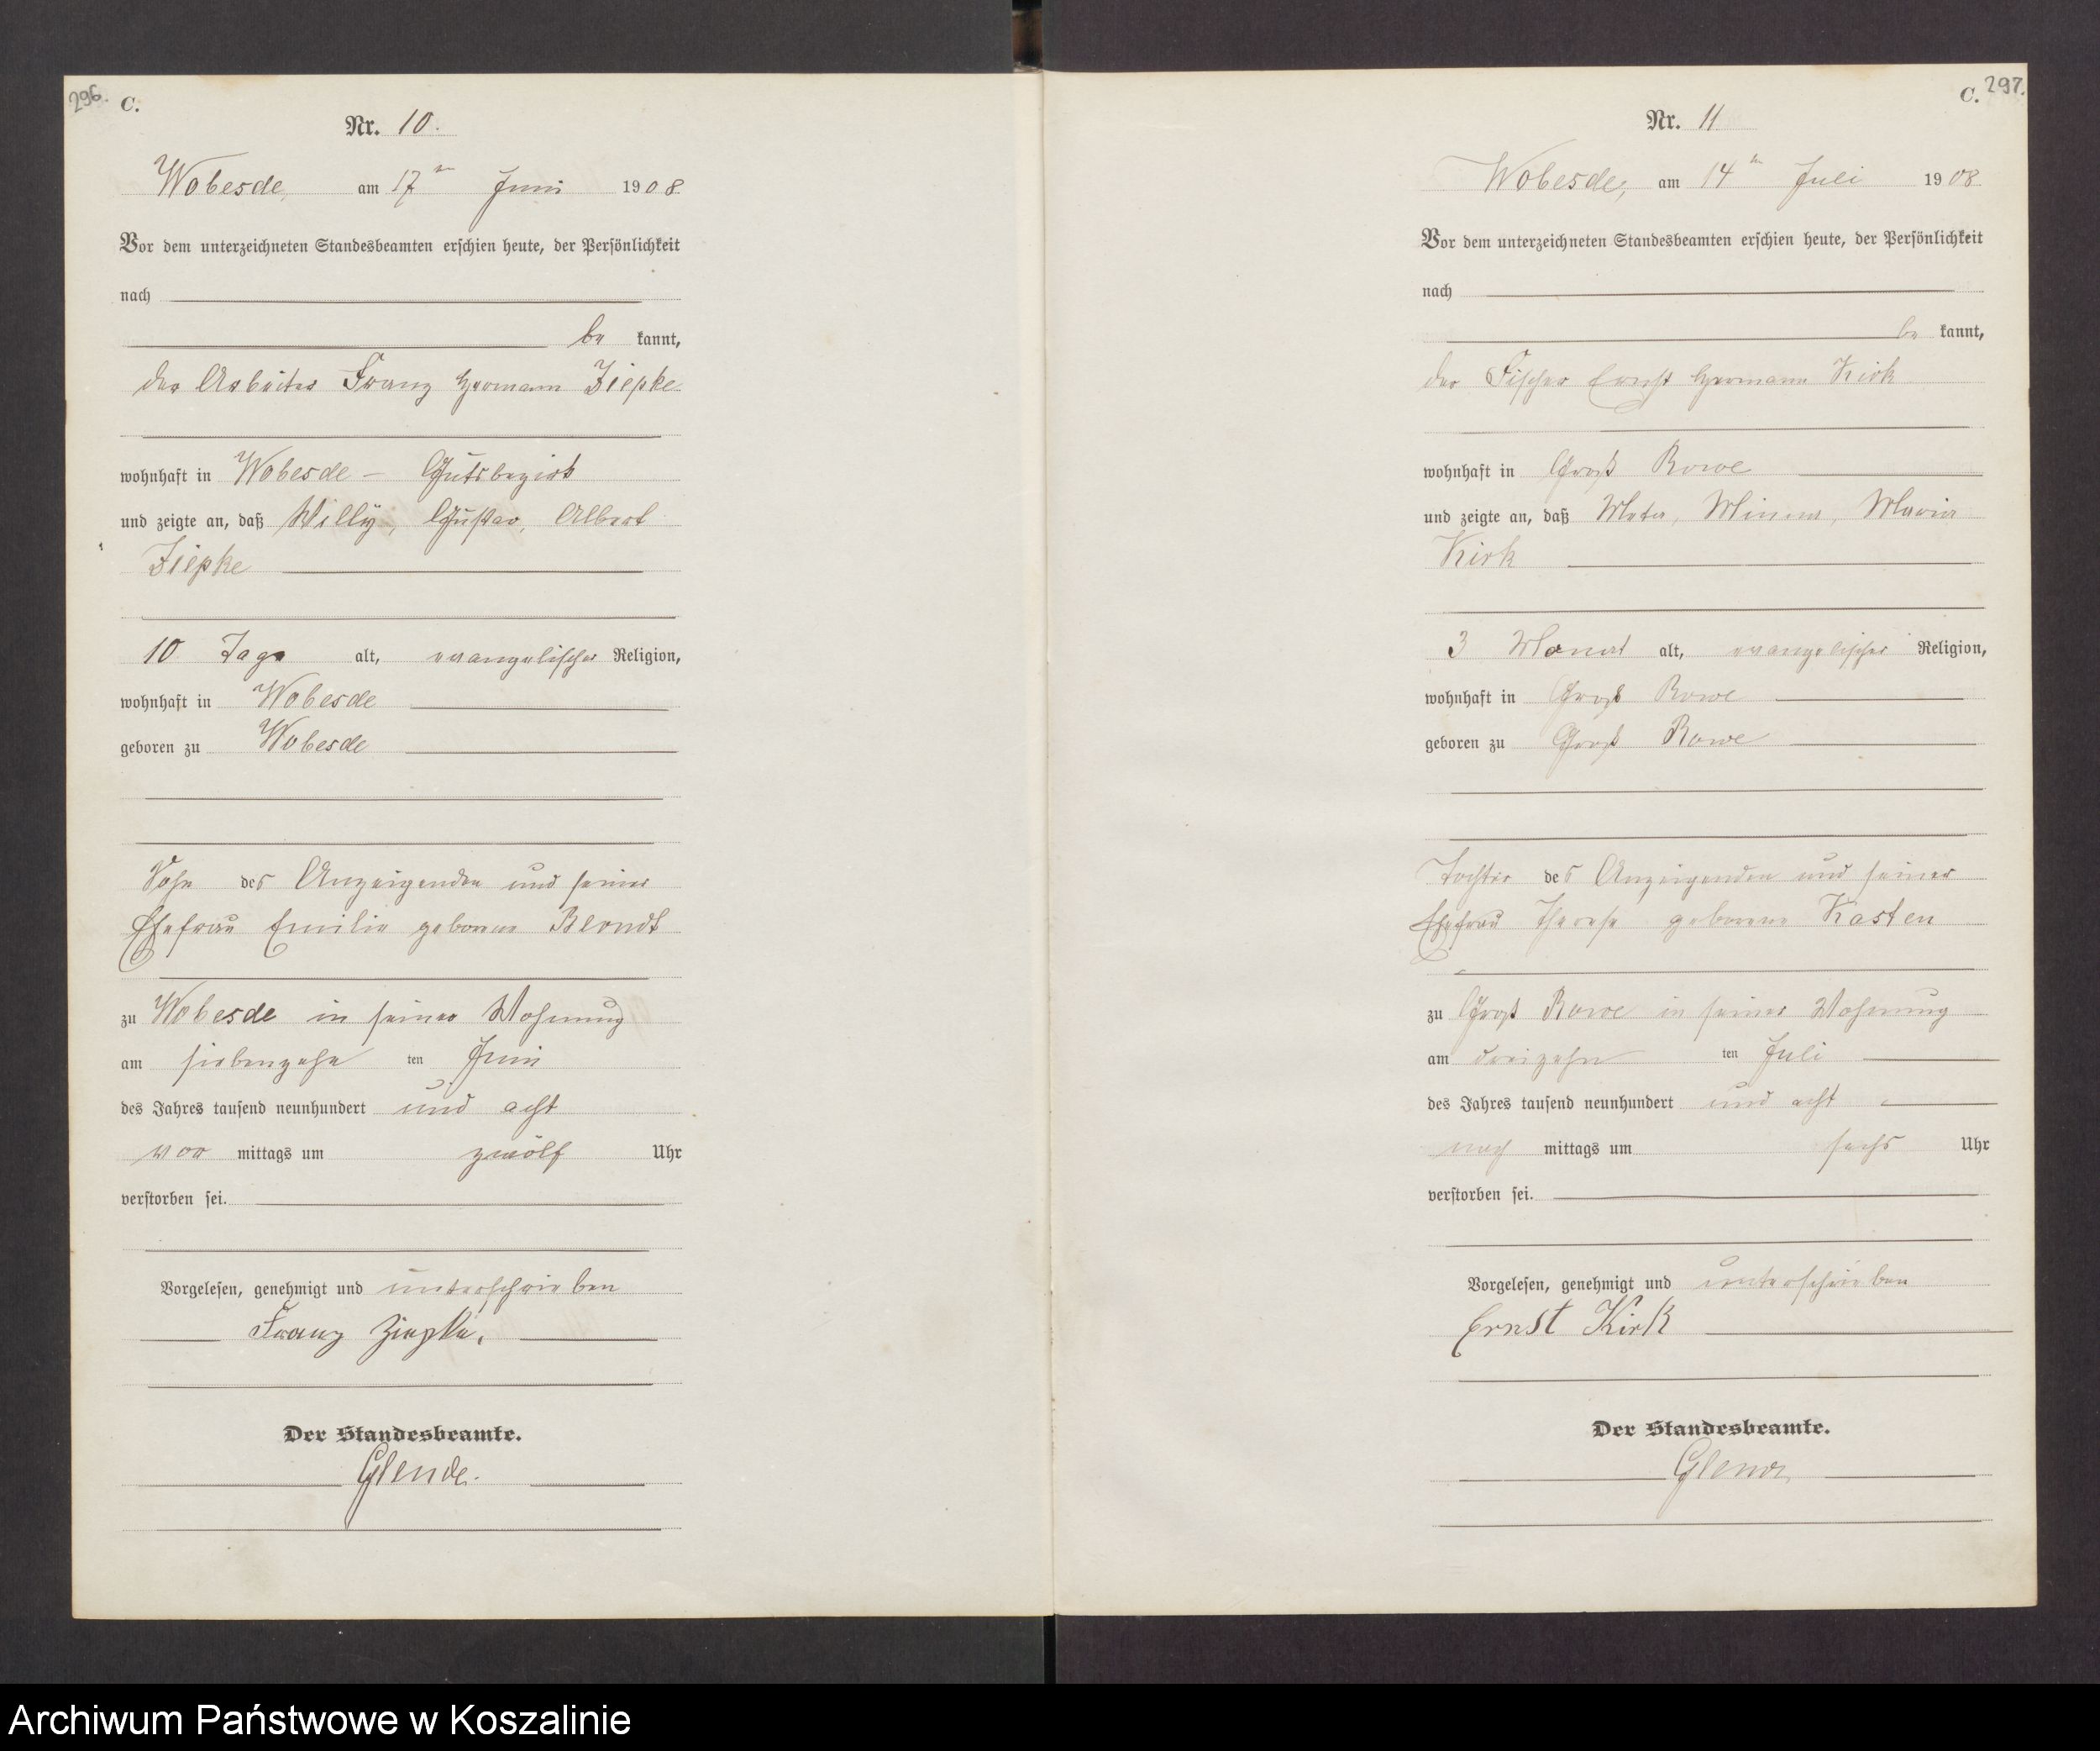 296.
C.
Nr. 10.
Wobesde, am 17ten Juni 1908
Vor dem unterzeichneten Standesbeamten erschien heute, der Persönlichkeit
nach
be kannt,
der Arbeiter Franz Hermann Ziepke
wohnhaft in Wobesde - Gutsbezirk
und zeigte an, daß Willy, Gustav, Albert
Ziepke
10 Tage alt, evangelischer Religion,
wohnhaft in Wobesde
geboren zu Wobesde
Sohn des Anzeigenden und seiner
Ehefrau Emilie geborene Berndt
zu Wobesde in seiner Wohnung
am siebenzehn ten Juni
des Jahres tausend neunhundert und acht
vor mittags um zwölf Uhr
verstorben sei.
Vorgelesen, genehmigt und unterschrieben
Franz Ziepke.
Der Standesbeamte.
Glende.
C. 297.
Nr. 11
Wobesde, am 14ten Juli 1908
Vor dem unterzeichneten Standesbeamten erschien heute, der Persönlichkeit
nach
be kannt,
der Fischer Ernst Hermann Kirk
wohnhaft in Groß Rowe
und zeigte an, daß Meta, Minna, Maria
Kirk
3 Monat alt, evangelischer Religion,
wohnhaft in Groß Rowe
geboren zu Groß Rowe
Tochter des Anzeigenden und seiner
Ehefrau Therese geborene Kasten
zu Groß Rowe in seiner Wohnung
am dreizehn ten Juli
des Jahres tausend neunhundert und acht
nach mittags um sechs Uhr
verstorben sei.
Vorgelesen, genehmigt und unterschrieben
Ernst Kirk
Der Standesbeamte.
Glende
Archiwum Państwowe w Koszalinie